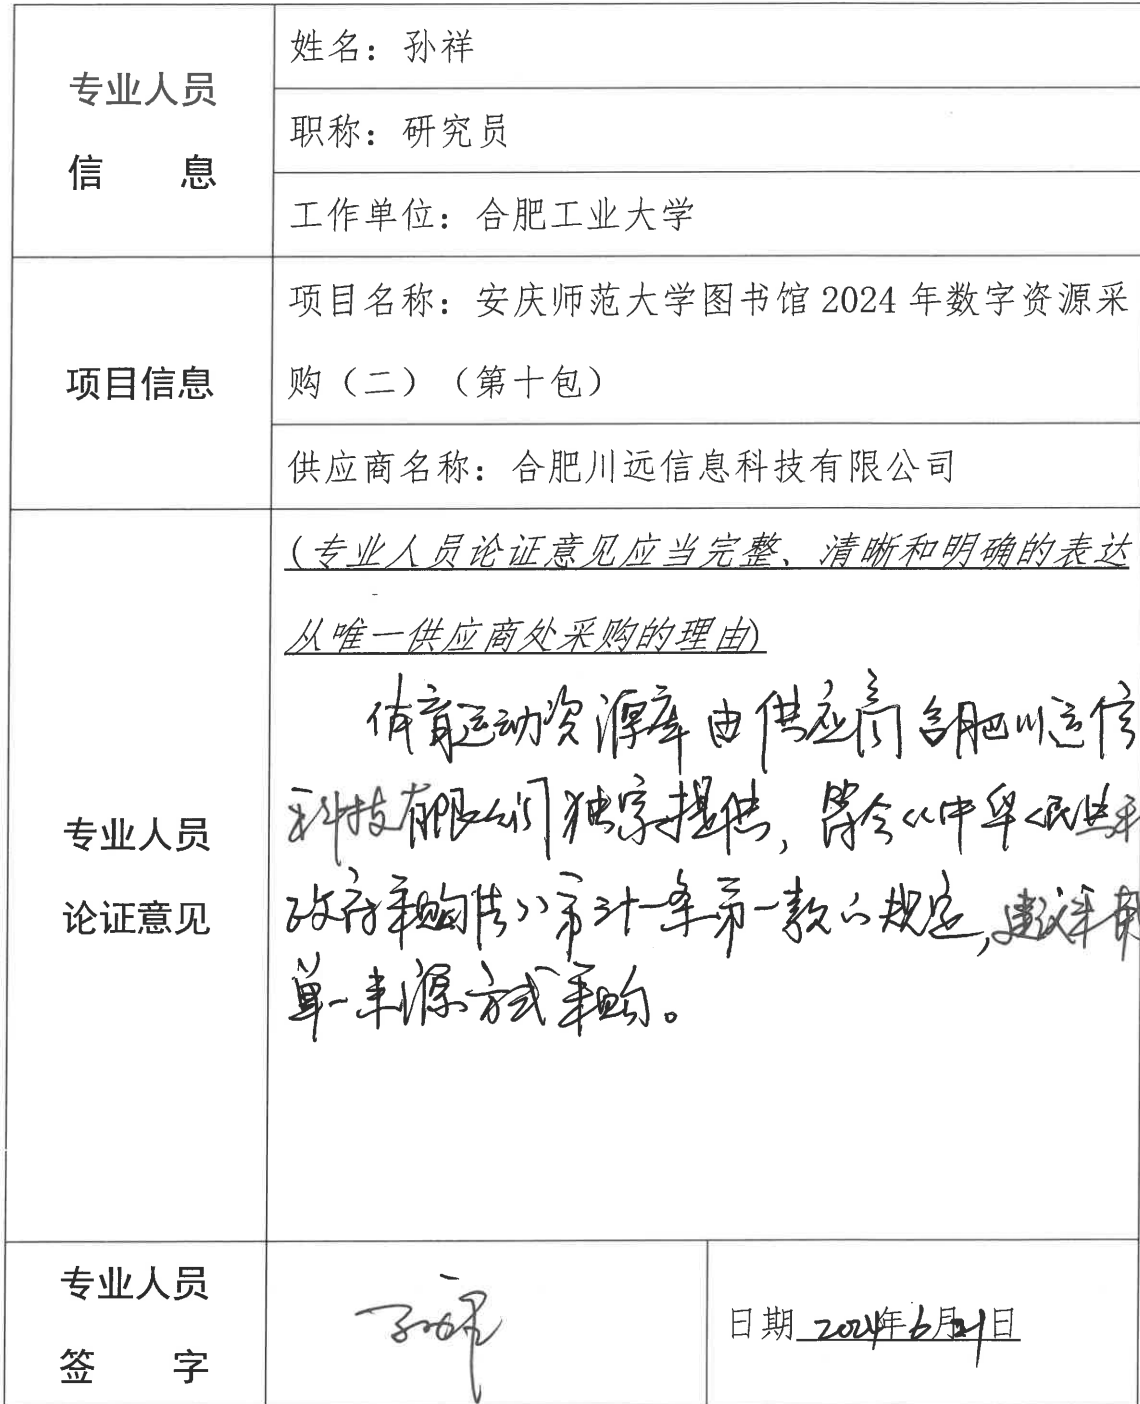 专业人员
信息
姓名：孙祥
职称：研究员
工作单位：合肥工业大学
项目信息
项目名称：安庆师范大学图书馆 2024 年数字资源采
购（二）（第十包）
供应商名称：合肥川远信息科技有限公司
专业人员
论证意见
(专业人员论证意见应当完整、清晰和明确的表达
从唯一供应商处采购的理由)
体育运动资源库由供应商合肥川远信
科技有限公司独家提供，符合《中华人民共和
政府采购法》第三十一条第一款的规定，建议采用
单一来源方式采购。
专业人员
签字
孙祥
日期 2024年6月21日